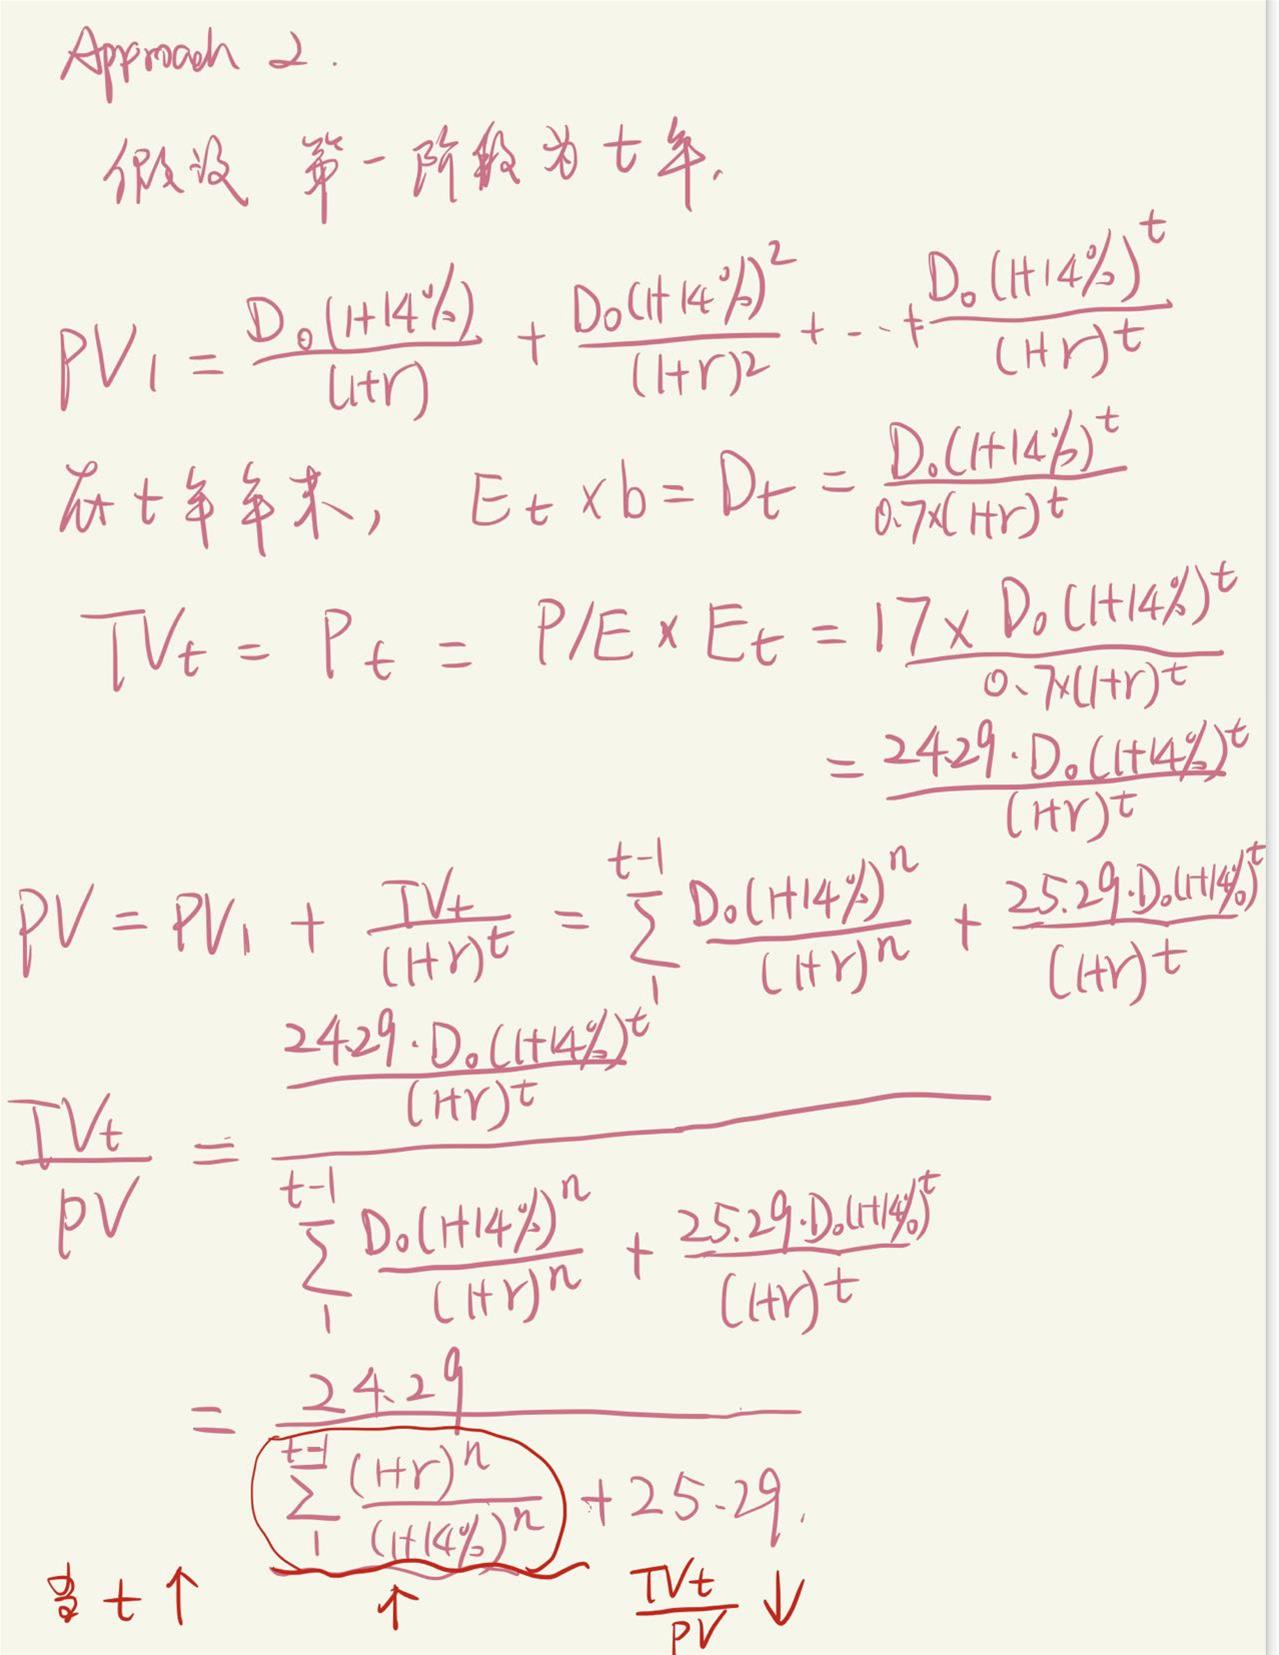 Approach 2.
假设 第一阶段为 t 年.
PV₁ = D₀(1+14%)/(1+r) + D₀(1+14%)²/(1+r)² + --+ D₀(1+14%)^t/(1+r)^t
在 t 年年末, E_t × b = D_t = D₀(1+14%)^t/0.7×(1+r)^t
TV_t = P_t = P/E × E_t = 17 × D₀(1+14%)^t/0.7×(1+r)^t
= 24.29·D₀(1+14%)^t/(1+r)^t
PV = PV₁ + TV_t/(1+r)^t = Σ_1^{t-1} D₀(1+14%)^n/(1+r)^n + 25.29·D₀(1+14%)^t/(1+r)^t
TV_t/PV = [24.29·D₀(1+14%)^t/(1+r)^t] / [Σ_1^{t-1} D₀(1+14%)^n/(1+r)^n + 25.29·D₀(1+14%)^t/(1+r)^t]
= 24.29 / [Σ_1^{t-1} (1+r)^n/(1+14%)^n + 25.29.]
当 t ↑ ↑ TV_t/PV ↓